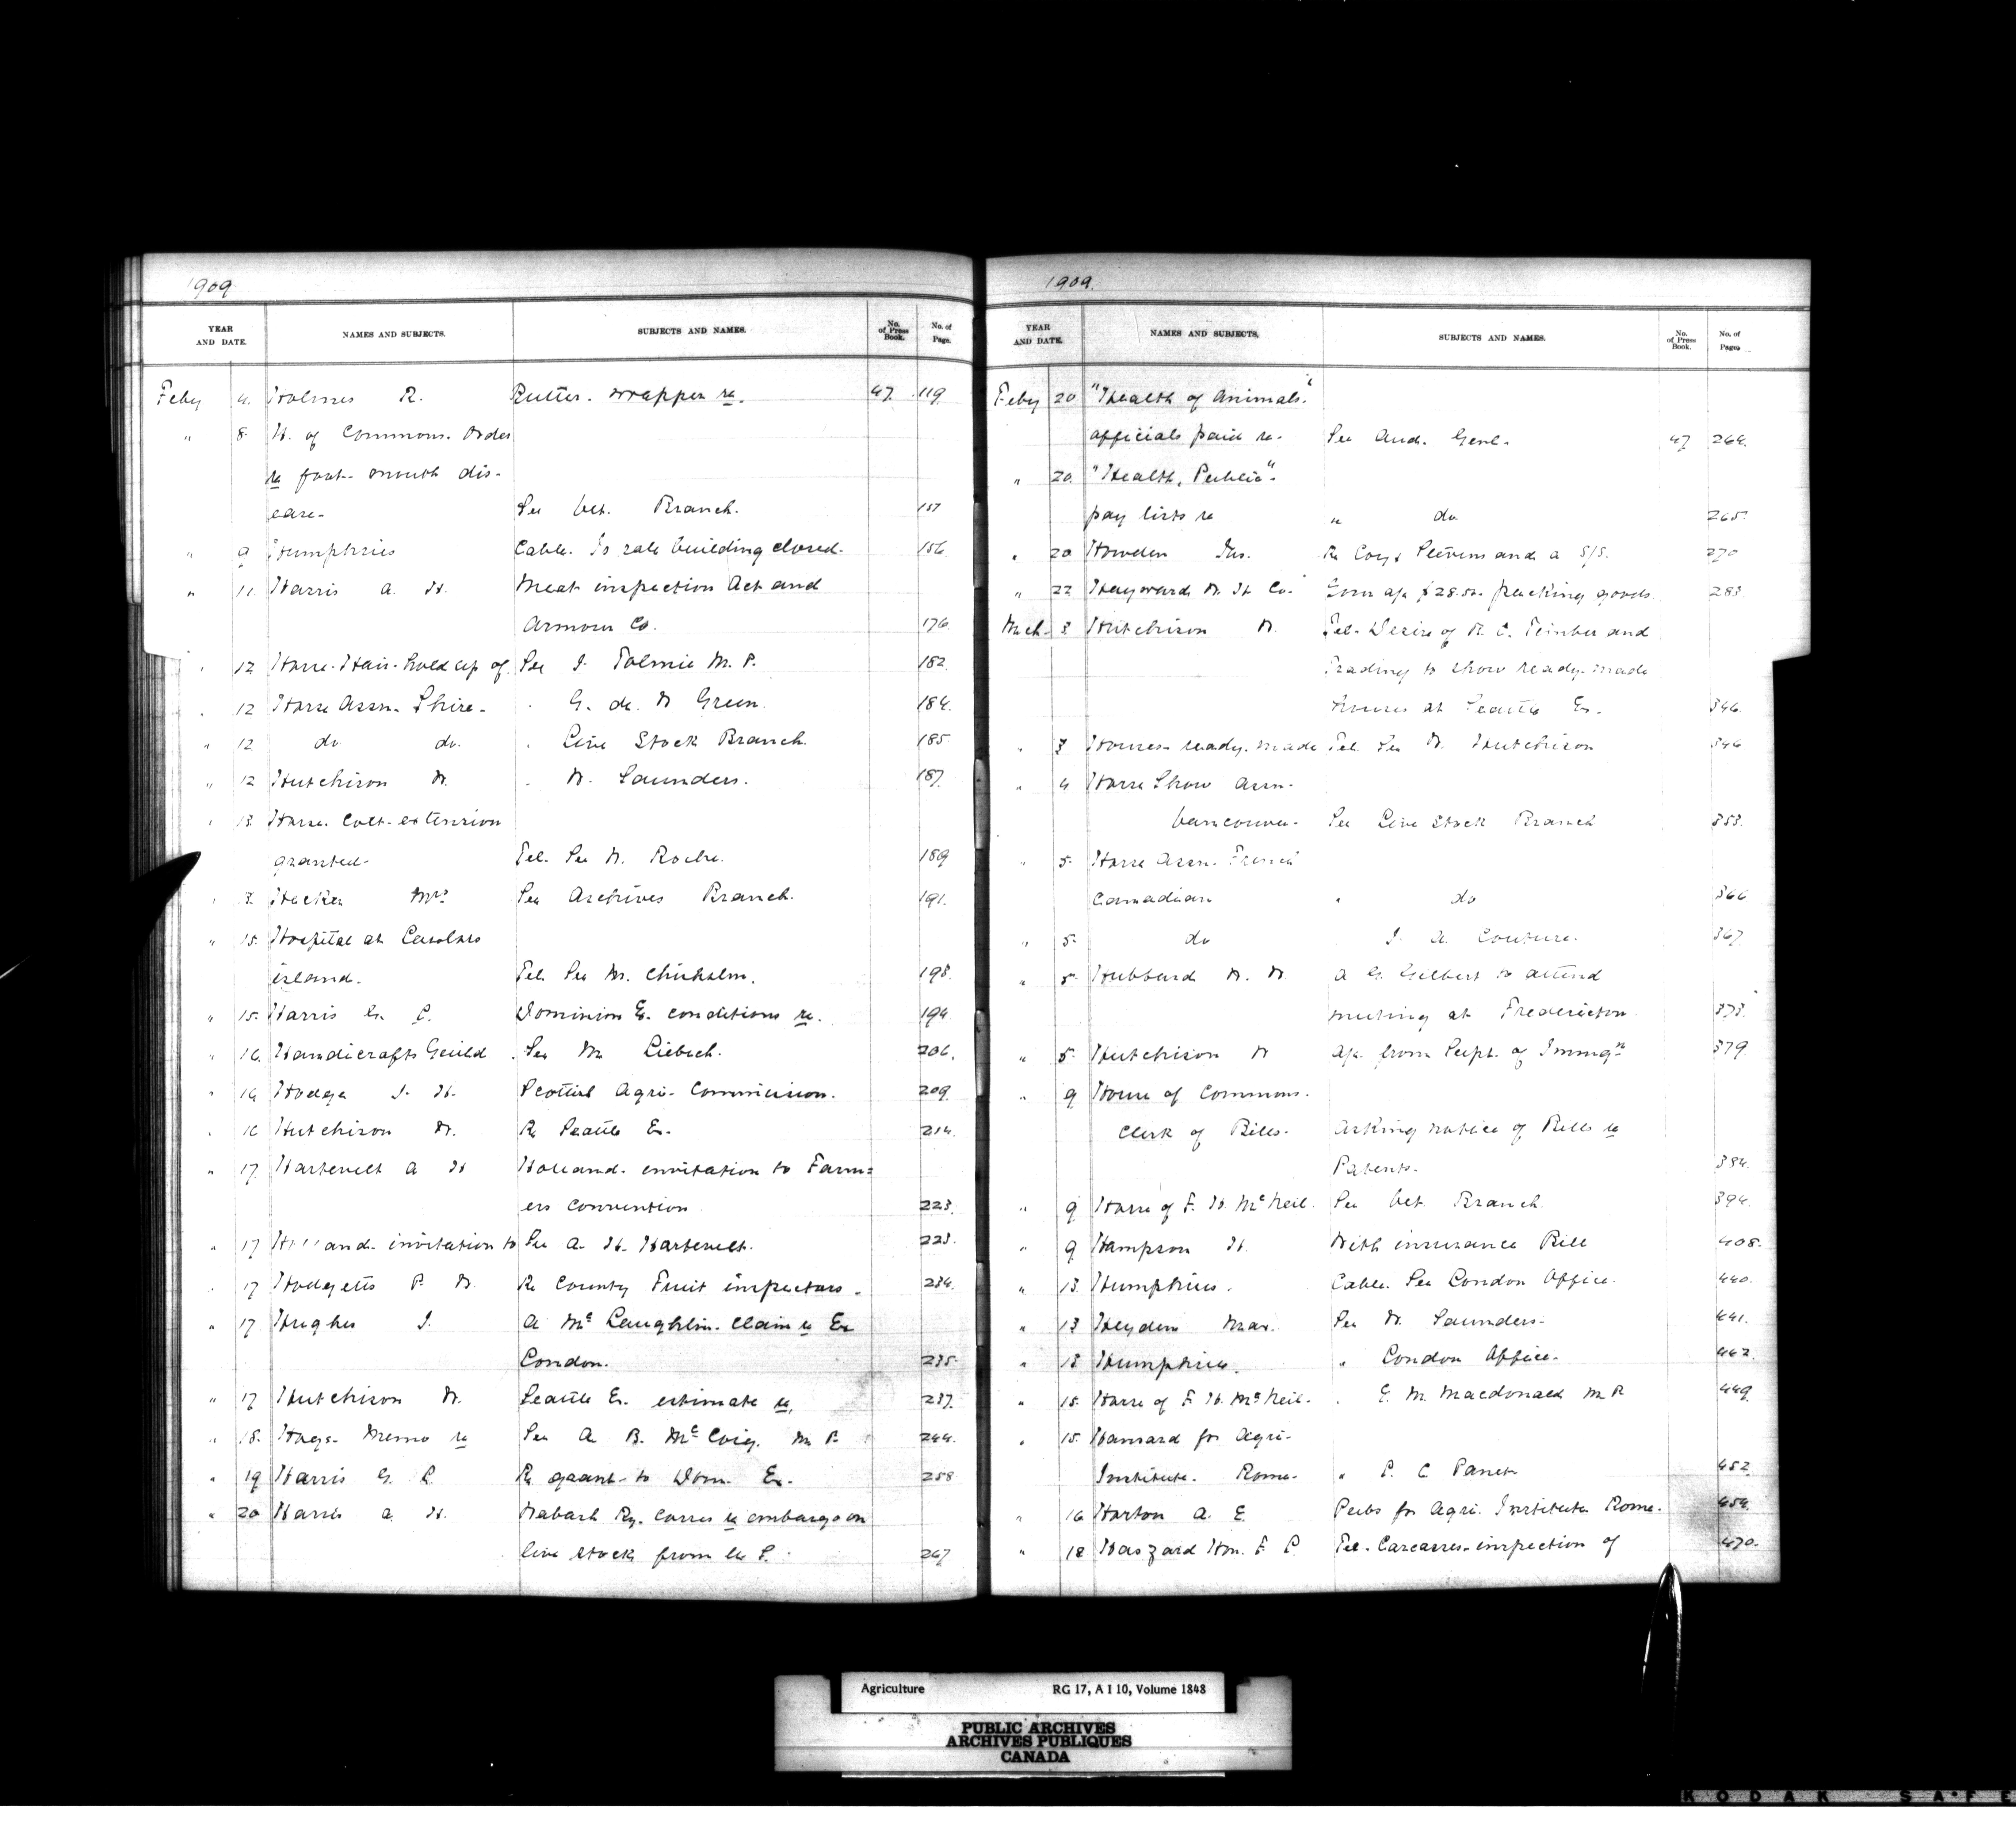 1909
YEAR AND DATE. NAMES AND SUBJECTS. SUBJECTS AND NAMES. No. of Press Book. No. of Page.
Feby 4. Holmes R. Butter. wrapper re. 47. 119
" 8. H. of Commons. Order
re foot-mouth dis-
ease- See Vet. Branch. 151
" 9 Humphries Cable. Is sale building closed. 156
" 11. Harris A. H. Meat inspection Act and
Armour Co. 176
" 12 Horse-Hair-hold up of See J. Tolmie M. P. 182
" 12 Horse Assn. Shire- " G. de W Green. 184.
" 12 do do. " Live Stock Branch. 185
" 12 Hutchison W. " W. Saunders. 187.
" 13. Horse. Colt-extension
granted- Tel. See W. Roche. 189
" Hocken Mrs See Archives Branch. 191.
" 15. Hospital at
island. Tel. See M. Chisholm. 193.
" 15. Harris G. C. Dominion Ex. conditions re. 194
" 16. Handicrafts Guild. See M Liebich. 206.
" 16 Hodge J. H. Scottish Agri. Commission. 209.
" 16 Hutchison W. Re Seattle Ex. 214.
" 17. Hartevelt A H Holland. invitation to Farm=
ers convention 223.
" 17 Holland. invitation to See A. H. Hartevelt. 223.
" 17 Hodgetts P. W. Re County Fruit inspectors. 234.
" 17 Hughes J. A McLaughlin. Claim re Ex
London. 235.
" 17 Hutchison W. Seattle Ex. estimate re. 237.
" 18. Hogs- Memo re See A. B. McCoig. M. P. 244.
" 19 Harris G. C Re grant-to Dom. Ex. 258
" 20 Harris A. H. Wabash Ry. Corres re embargo on
live stock from U. S. 267
1909.
YEAR AND DATE. NAMES AND SUBJECTS. SUBJECTS AND NAMES. No. of Press Book. No. of Pages
Feby 20 "Health of Animals."
officials paid re. See Aud. Genl. 47 264.
" 20. "Health, Public".
pay lists re " do 265.
" 20 Howden Jas. Re Coy & Stevens and a S/S. 270
" 22 Hayward W. H. Co. Govn a/c $28.50. packing goods. 283
Mch. 3 Hutchison W. Tel. Desire of B. C. Timber and
Trading to show ready-made
houses at Seattle Ex. 346.
" 3 Houses-ready-made Tel. See W. Hutchison 346
" 4 Horse Show Assn.
Vancouver- See Live Stock Branch 353.
" 5. Horse Assn. French
Canadian " do 366
" 5. do J. A. Couture. 367.
" 5. Hubbard W. W. A G. Gilbert to attend
meeting at Fredericton. 373.
" 5. Hutchison W a/c from Supt. of Immgn 379
" 9 House of Commons.
Clerk of Bills. Asking notice of Bills re
Patents. 384.
" 9 Horse of F. H. McNeil. See Vet. Branch. 394.
" 9 Hampson H. With insurance Bill 408.
" 13. Humphries. Cable. See London Office. 440.
" 13 Heyden Max. See W. Saunders. 441.
" 13 Humphries. " London Office. 442.
" 15. Horse of F. H. McNeil. " E. M. Macdonald M. P 449.
" 15. Hansard for Agri-
Institute. Rome. " P. C. Panet 452.
" 16 Horton A. E. Pubs for Agri. Institute Rome. 454.
" 18 Haszard Hon. F. L. Tel. Carcasses-inspection of 470.
Agriculture RG 17, A I 10, Volume 1848
PUBLIC ARCHIVES
ARCHIVES PUBLIQUES
CANADA
KODAK SAFE